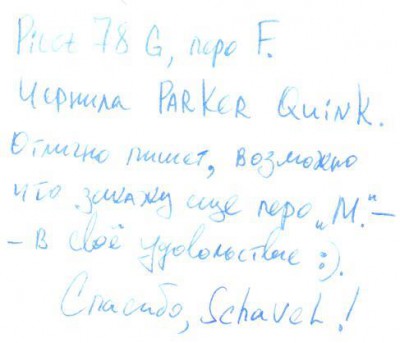 Pilot 78 G, перо F.
Чернила PARKER QUINK.
Отлично пишет, возможно
что закажу еще перо „М." –
– В своё удовольствие :).
Спасибо, Schavel!